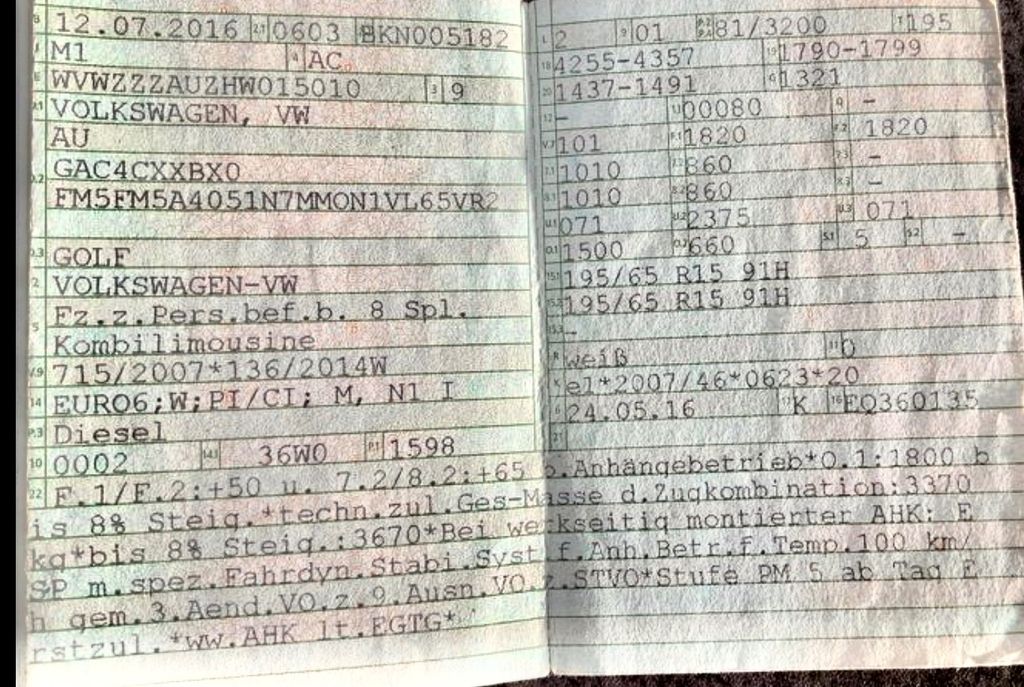 B 12.07.2016 2.1 0603 BKN005182
J M1 4 AC
E WVWZZZAUZHW015010 3 9
D.1 VOLKSWAGEN, VW
AU
D.2 GAC4CXXBX0
FM5FM5A4051N7MMON1VL65VR2
D.3 GOLF
2 VOLKSWAGEN-VW
5 Fz.z.Pers.bef.b. 8 Spl.
Kombilimousine
V.9 715/2007*136/2014W
14 EURO6;W;PI/CI; M, N1 I
P.3 Diesel
10 0002 14.1 36W0 P.1 1598
L 2 9 01 P.2 P.4 81/3200 T 195
18 4255-4357 19 1790-1799
20 1437-1491 G 1321
12 - 13 00080 Q -
V.7 101 F.1 1820 F.2 1820
7.1 1010 7.2 860 7.3 -
8.1 1010 8.2 860 8.3 -
U.1 071 U.2 2375 U.3 071
O.1 1500 O.2 660 S.1 5 S.2 -
15.1 195/65 R15 91H
15.2 195/65 R15 91H
15.3 -
R weiß 11 0
K e1*2007/46*0623*20
6 24.05.16 17 K 16 EQ360135
21
22 F.1/F.2:+50 u. 7.2/8.2:+65 b.Anhängebetrieb*O.1:1800 b
is 8% Steig.*techn.zul.Ges-Masse d.Zugkombination:3370
kg*bis 8% Steig.:3670*Bei werkseitig montierter AHK: E
SP m.spez.Fahrdyn.Stabi.Syst.f.Anh.Betr.f.Temp.100 km/
h gem.3.Aend.VO.z.9.Ausn.VO.z.STVO*Stufe PM 5 ab Tag E
rstzul.*ww.AHK lt.EGTG*